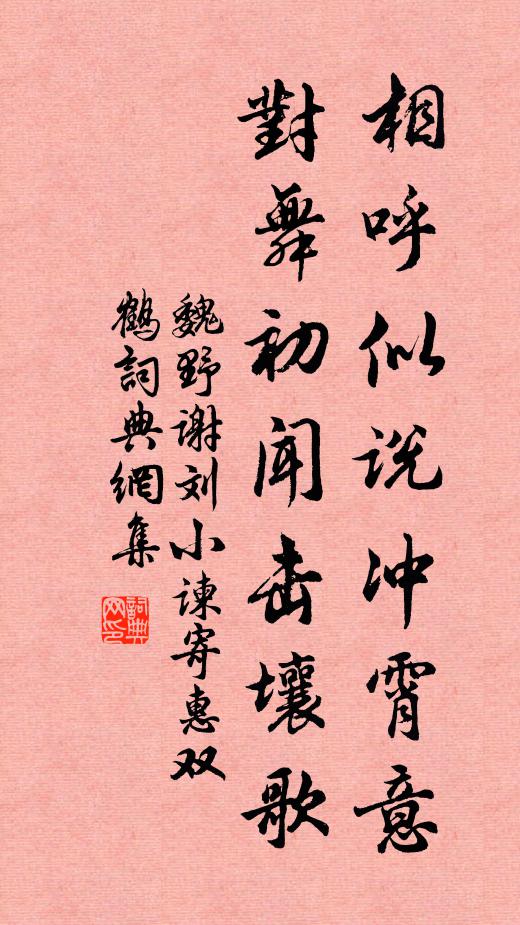 相呼似说冲霄意
對舞初闻击壤歌
魏野谢刘小谏寄惠双
鶴詞典網集
詞典
网印